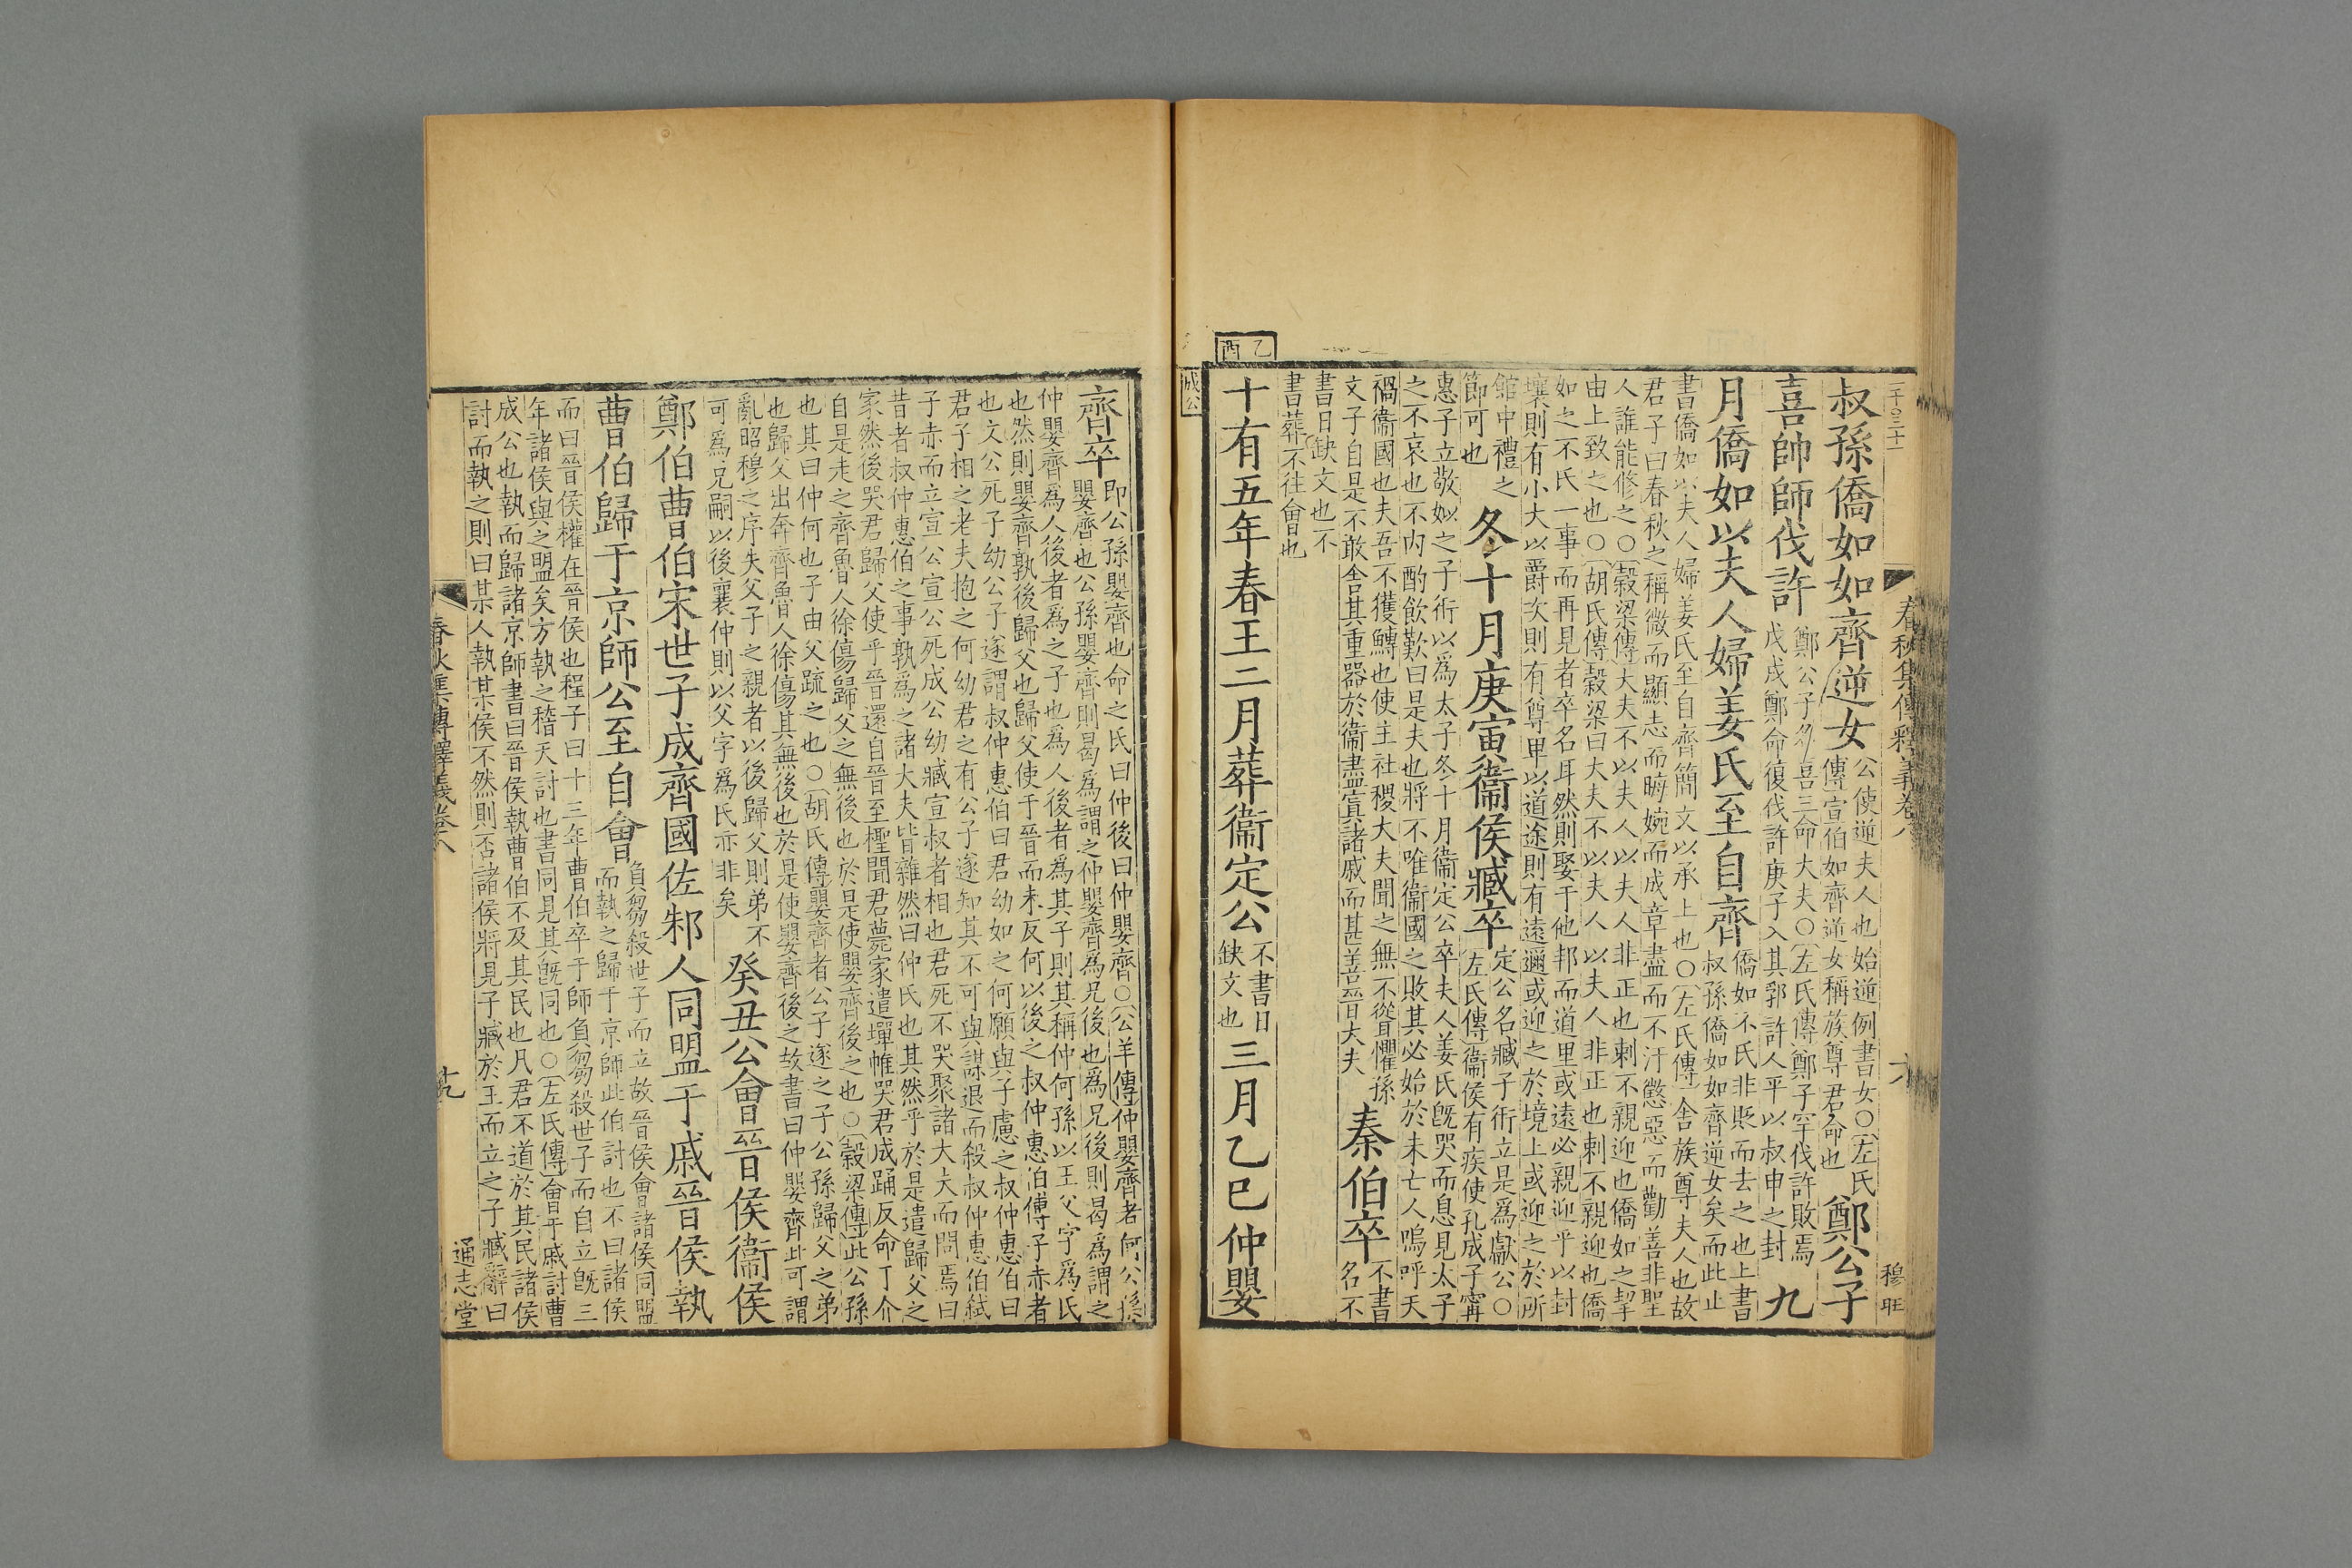 春秋集傳釋義卷八
穆旺
叔孫僑如如齊逆女
公使逆夫人也始逆例書女○左氏
傳宣伯如齊逆女稱族尊君命也
鄭公子
喜帥師伐許
鄭公子名喜三命大夫○左氏傳鄭子罕伐許敗焉
戊戌鄭命復伐許庚子入其郛許人平以叔申之封
九
月僑如以夫人婦姜氏至自齊
僑如不氏非貶而去之也上書
叔孫僑如如齊逆女矣而此止
書僑如以夫人婦姜氏至自齊簡文以承上也○左氏傳舍族尊夫人也故
君子曰春秋之稱微而顯志而晦婉而成章盡而不汙懲惡而勸善非聖
人誰能修之○穀梁傳大夫不以夫人以夫人非正也刺不親迎也僑如之挈
由上致之也○胡氏傳穀梁曰大夫不以夫人以夫人非正也刺不親迎也僑
如之不氏一事而再見者卒名耳然則娶于他邦而道里或遠必親迎乎以封
壤則有小大以爵次則有尊卑以道途則有遠邇或迎之於境上或迎之於所
館中禮之
節可也
冬十月庚寅衞侯臧卒
定公名臧子衎立是為獻公○
左氏傳衞侯有疾使孔成子甯
惠子立敬姒之子衎以為太子冬十月衞定公卒夫人姜氏旣哭而息見太子
之不哀也不內酌飲歎曰是夫也將不唯衞國之敗其必始於未亡人嗚呼天
禍衞國也夫吾不獲鱄也使主社稷大夫聞之無不聳懼孫
文子自是不敢舍其重器於衞盡寘諸戚而甚善晉大夫
秦伯卒
不書
名不
書日缺文也不
書葬不往會也
乙酉
十有五年春王二月葬衞定公
不書日
缺文也
三月乙巳仲嬰
成公
齊卒
即公孫嬰齊也命之氏曰仲後曰仲嬰齊○公羊傳仲嬰齊者何公孫
嬰齊也公孫嬰齊則曷為謂之仲嬰齊為兄後也為兄後則曷為謂之
仲嬰齊為人後者為之子也為人後者為其子則其稱仲何孫以王父字為氏
也然則嬰齊孰後歸父也歸父使于晉而未反何以後之叔仲惠伯傅子赤者
也文公死子幼公子遂謂叔仲惠伯曰君幼如之何願與子慮之叔仲惠伯曰
君子相之老夫抱之何幼君之有公子遂知其不可與謀退而殺叔仲惠伯弒
子赤而立宣公宣公死成公幼臧宣叔者相也君死不哭聚諸大夫而問焉曰
昔者叔仲惠伯之事孰為之諸大夫皆雜然曰仲氏也其然乎於是遣歸父之
家然後哭君歸父使乎晉還自晉至檉聞君薨家遣墠帷哭君成踊反命丁介
自是走之齊魯人徐傷歸父之無後也於是使嬰齊後之也○穀梁傳此公孫
也其曰仲何也子由父疏之也○胡氏傳嬰齊者公子遂之子公孫歸父之弟
也歸父出奔齊魯人徐傷其無後也於是使嬰齊後之故書曰仲嬰齊此可謂
亂昭穆之序失父子之親者以後歸父則弟不
可為兄嗣以後襄仲則以父字為氏亦非矣
癸丑公會晉侯衞侯
鄭伯曹伯宋世子成齊國佐邾人同盟于戚晉侯執
曹伯歸于京師公至自會
負芻殺世子而立故晉侯會諸侯同盟
而執之歸于京師此伯討也不曰諸侯
而曰晉侯權在晉侯也程子曰十三年曹伯卒于師負芻殺世子而自立旣三
年諸侯與之盟矣方執之稽天討也書同見其旣同也○左氏傳會于戚討曹
成公也執而歸諸京師書曰晉侯執曹伯不及其民也凡君不道於其民諸侯
討而執之則曰某人執某侯不然則否諸侯將見子臧於王而立之子臧辭曰
春秋集傳釋義卷八
十九
通志堂